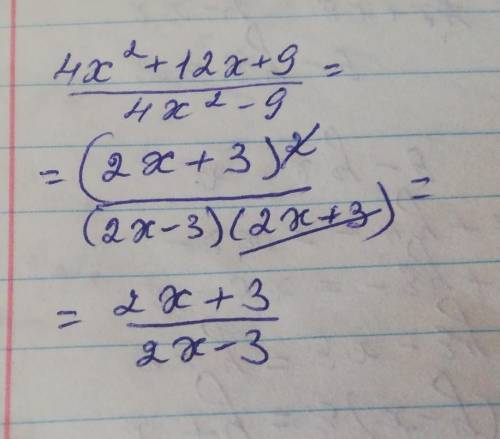 4x² + 12x + 9 =
4x² - 9
= (2x + 3)²
(2x - 3)(2x + 3) =
= 2x + 3
2x - 3